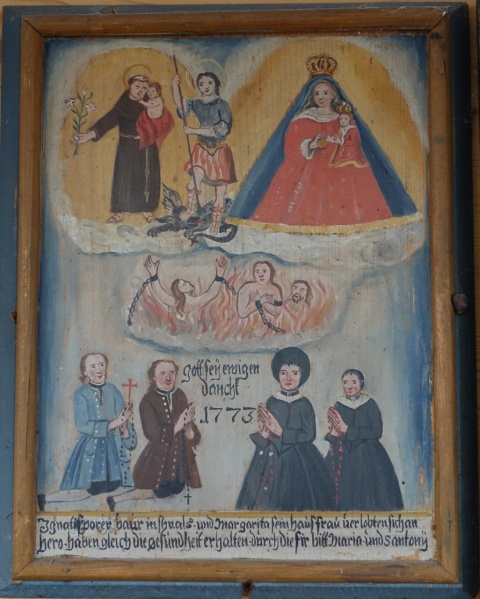 gott seÿ ewigen
danckh
1773
Ignatius baur in und Margarita sein hausfrau verlobten sich an
hero haben gleich die gesundheit erhalten durch die fir bitt Maria und S antonÿ